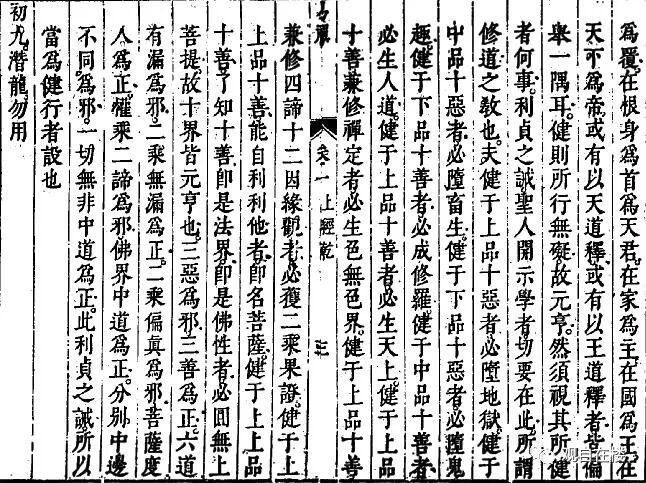 為覆。在根身為首為天君。在家為主。在國為王。在
天下為帝。或有以天道釋。或有以王道釋者。皆偏
舉一隅耳。健則所行無礙。故元亨。然須視其所健
者何事。利貞之誡。聖人開示學者切要在此。所謂
修道之敎也。夫健于上品十惡者。必墮地獄。健于
中品十惡者。必墮畜生。健于下品十惡者。必墮鬼
趣。健于下品十善者。必成修羅。健于中品十善者。
必生人道。健于上品十善者。必生天上。健于上品
十善。兼修禪定者。必生色無色界。健于上品十善
兼修四諦十二因緣觀者。必獲二乘果證。健于上
上品十善。能自利利他者。即名菩薩。健于上上品
十善。了知十善即是法界即是佛性者。必圓無上
菩提。故十界皆元亨也。三惡為邪。三善為正。六道
有漏為邪。二乘無漏為正。二乘偏真為邪。菩薩度
人為正。權乘二諦為邪。佛界中道為正。分別中邊
不同為邪。一切無非中道為正。此利貞之誡。所以
當為健行者設也
初九。潛龍勿用
卷一 上經乾
观自在楼